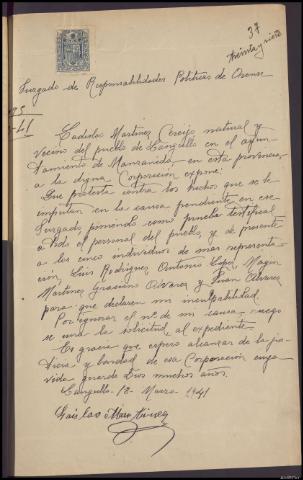 37
treinta y siete
Juzgado de Responsabilidades Politicas de Orense
Ladislao Martinez Cereijo natural y
vecino del pueblo de Langullo en el ayun
tamiento de Manzaneda, en esta provincia,
a la digna Corporación expone:
Que protesta contra los hechos que se le
imputan en la causa pendiente en ese
Juzgado, poniendo como prueba testifical
a todo el personal del pueblo, y de presente
a los cinco individuos de mas representa
ción, Luis Rodriguez Antonio Lopez
Martinez Graciano Alvarez y Juan Alvarez
para que declaren mi inculpabilidad.
Por ignorar el nº de mi causa ruego
se una la solicitud al expediente.
Es gracia que espero alcanzar de la jus
ticia y bondad de esa Corporación cuya
vida guarde Dios muchos años.
Langullo 12 Marzo 1941
Ladislao Martinez